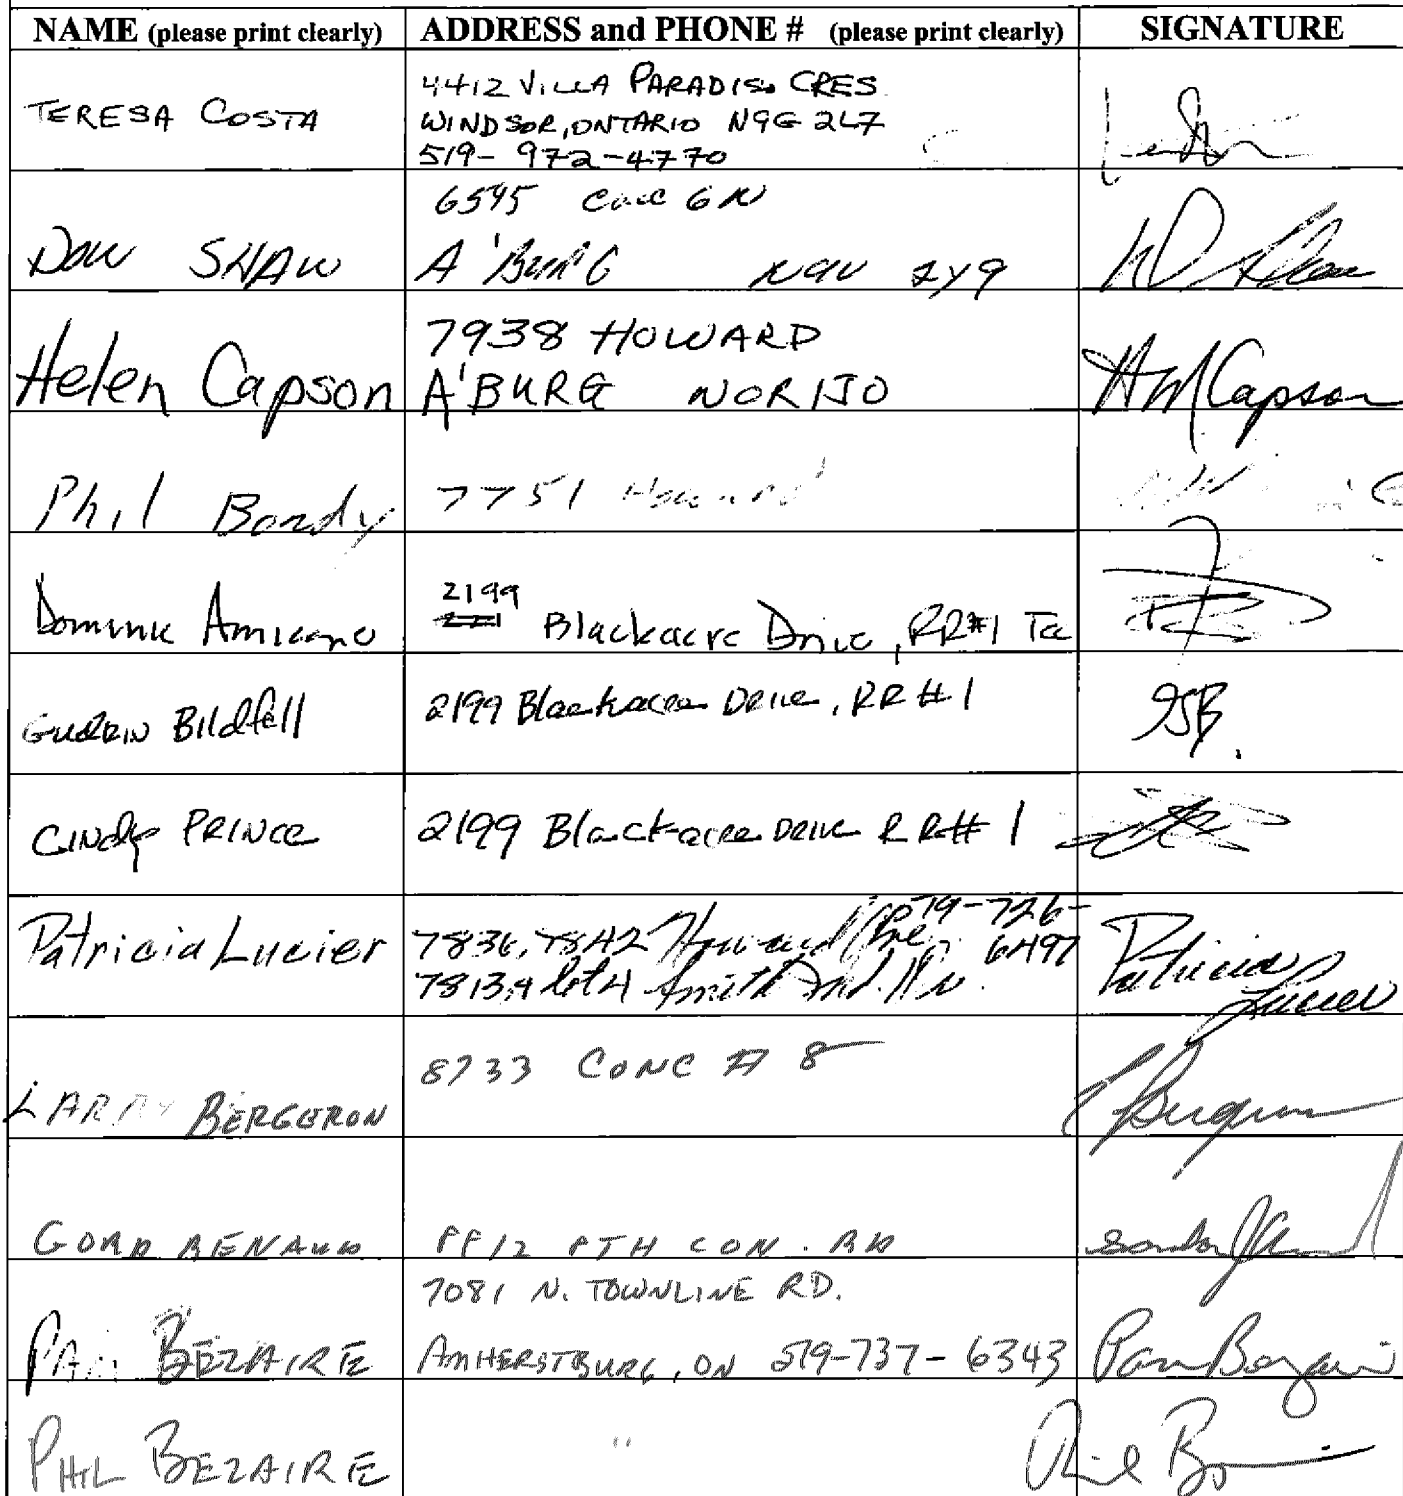 NAME (please print clearly) ADDRESS and PHONE # (please print clearly) SIGNATURE
TERESA COSTA
4412 VILLA PARADISO CRES
WINDSOR, ONTARIO N9G 2L7
519-972-4770
DON SHAW
6595 Conc 6 N
A'BURG N9V 2Y9
Helen Capson
7938 HOWARD
A'BURG NOR1JO
HM Capson
Phil Bondy
7751 Howard
Dominic Amicone
2199 Blackacre Drive, RR#1 Te
GUDRUN Bildfell
2199 Blackacre Drive, RR #1
GSB.
CINDY PRINCE
2199 Blackacre Drive RR# 1
Patricia Lucier
7836, 7842 Howard Ave 519-726-
6497
7813A lot 4 Smith Ind. Dr.
Patricia
Lucier
LARRY BERGERON
8733 CONC # 8
L Bergeron
GORD RENAUD
8812 8TH CON. RD
PAM BEZAIRE
7081 N. TOWNLINE RD.
AMHERSTBURG, ON 519-737-6343
Pam Bezaire
PHIL BEZAIRE
"
Phil B